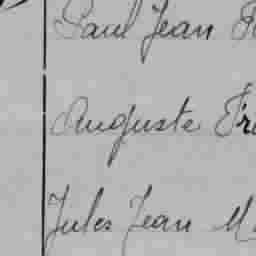 Paul Jean
Auguste Fr
Jules Jean M